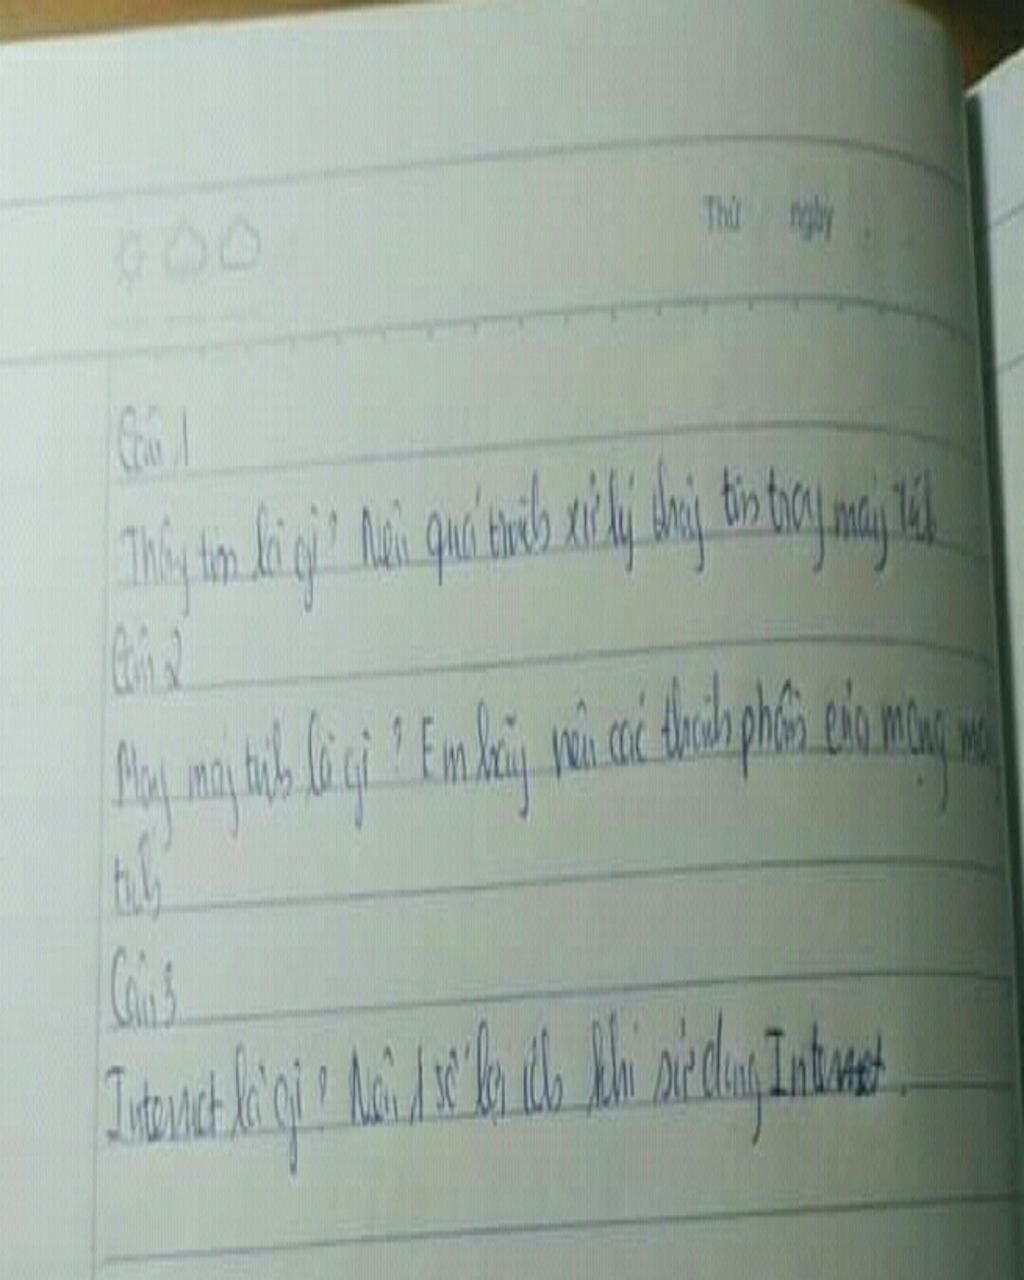 Thứ ngày
Câu 1
Thông tin là gì? Nêu quá trình xử lý thông tin trong máy tính
Câu 2
Mạng máy tính là gì? Em hãy nêu các thành phần của mạng máy
tính
Câu 3
Internet là gì? Nêu 1 số lợi ích khi sử dụng Internet.